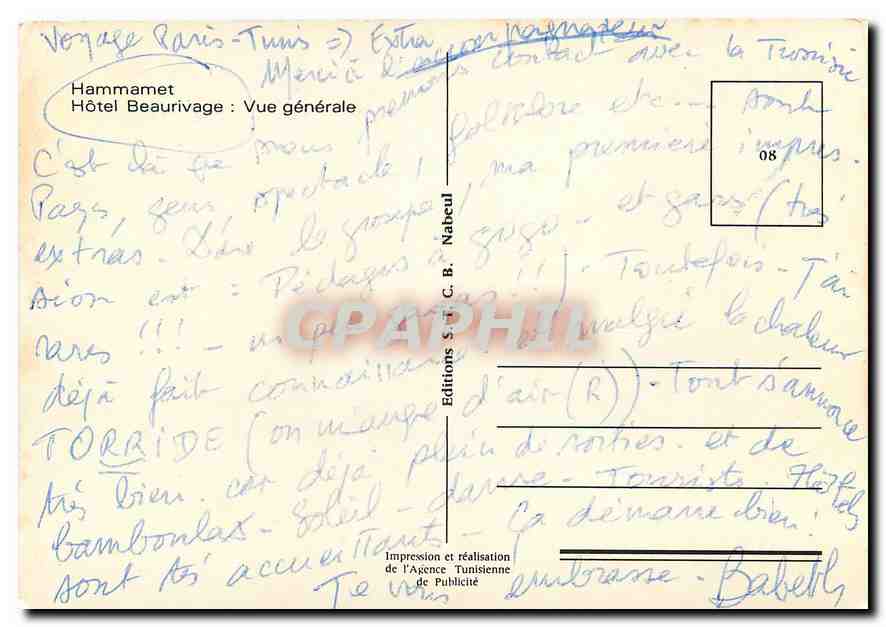 Voyage Paris-Tunis => Extra
Merci à l'accompagnateur
Hammamet
Hôtel Beaurivage : Vue générale
C'est là que nous prenons contact avec la Tunisie
Pays, gens, spectacle, folklore etc... sont
extras - Dans le groupe, ma première impres.
sion est = Pédagos à gogo - et gars (très
rares !!! - un peu !!!) - Toutefois - J'ai
déjà fait connaissance et malgré la chaleur
TORRIDE (on manque d'air (R)) - Tout s'annonce
très bien. car déjà plein de sorties. et de
bamboulas - Soleil - danse - Tourists. Hôtels
sont très accueillants - Ça démarre bien!
Je vous embrasse - Babeth
08
Editions S. T. C. B. Nabeul
Impression et réalisation
de l'Agence Tunisienne
de Publicité
CPAPHIL